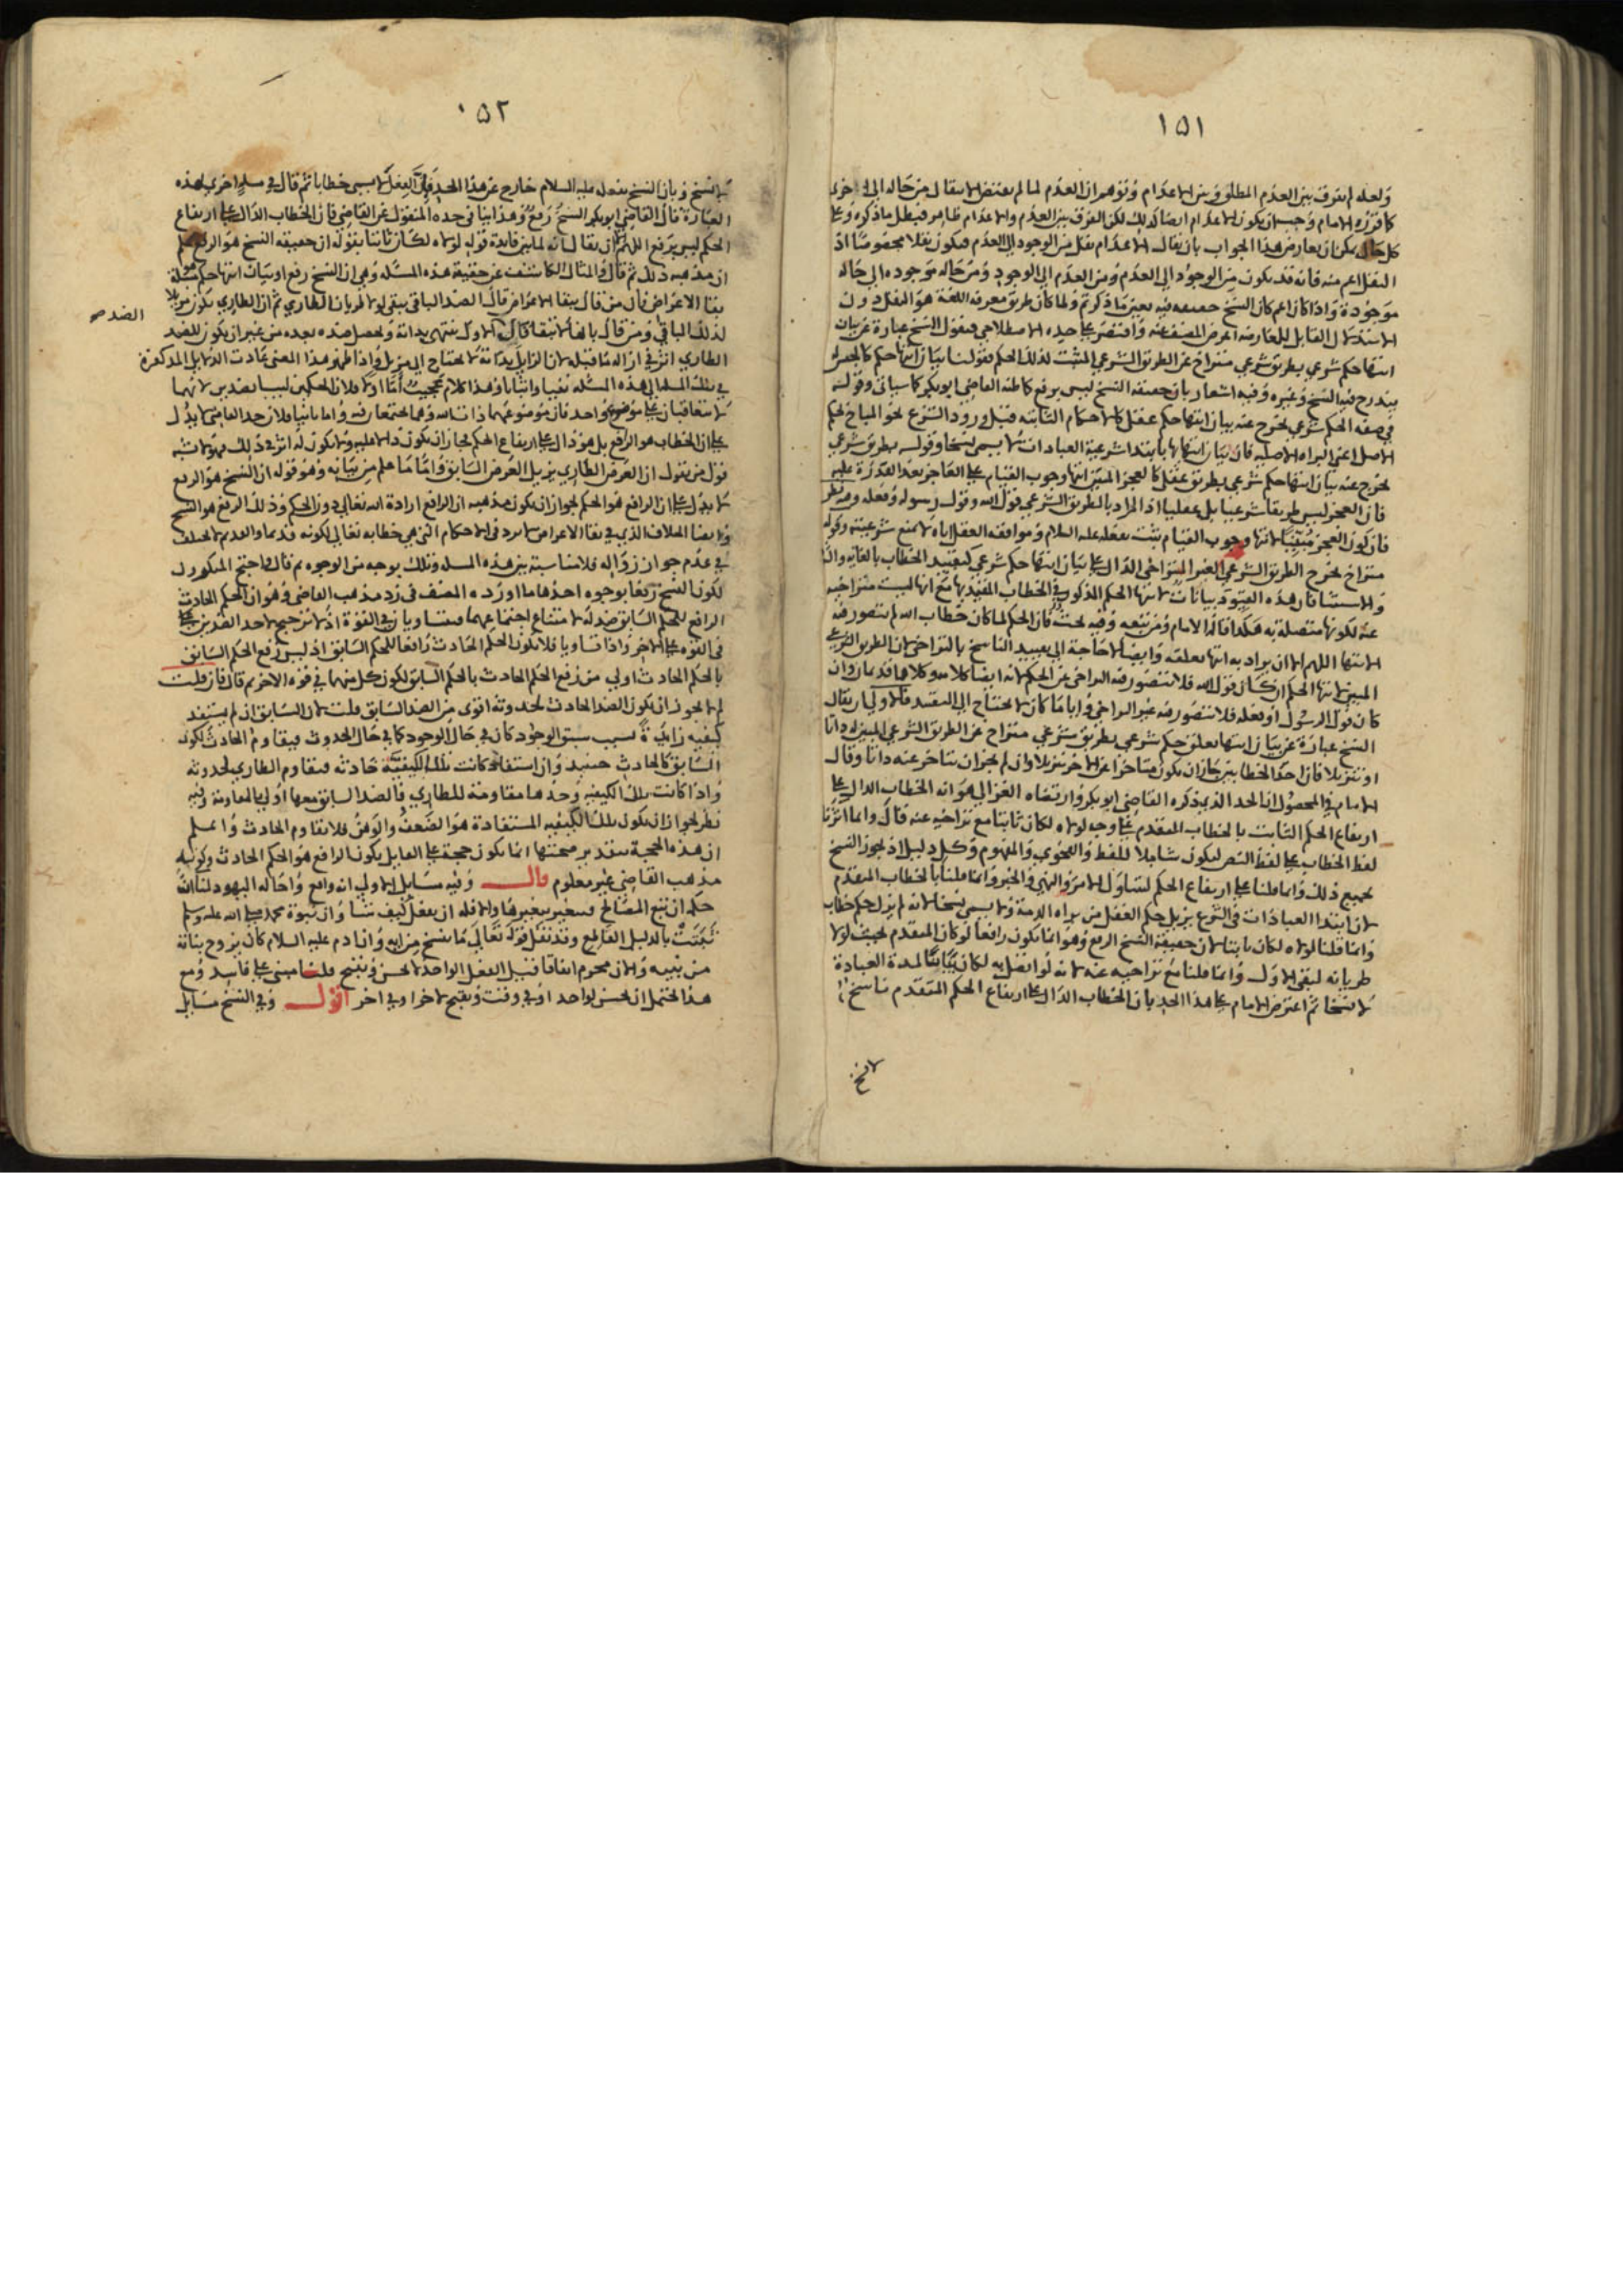 ١٥١
ولعله لم يفرق بين العدم المطلق وبين الاعدام وتوهم ان العدم لما لم يقتض الانتقال من حالة الى اخرى
كما قرره الامام وجب ان يكون الاعدام ايضا كذلك لكن الفرق بين العدم والاعدام ظاهر فبطل ما ذكره وعلى
كل حال يمكن ان يعارض هذا الجواب بان يقال الاعدام نقل من الوجود الى العدم فيكون نقلا مخصوصا اذ
النقل اعم منه فانه قد يكون من الوجود الى العدم ومن العدم الى الوجود ومن حالة موجودة الى حالة
موجودة واذا كان اعم كان النسخ حقيقة فيه بعين ما ذكرتم ولما كان طريق معرفة اللغة هو النقل دون
الاستدلال القابل للمعارضة اعرض المصنف عنه واقتصر على حده الاصطلاحي فنقول النسخ عبارة عن بيان
انتهاء حكم شرعي بطريق شرعي متراخ عن الطريق الشرعي المثبت لذلك الحكم فقولنا بيان انتهاء حكم كالجنس
يندرج فيه النسخ وغيره وفيه اشعار بان حقيقة النسخ ليس برفع كما ظنه القاضي ابو بكر كما سياتي وقوله
في صفة الحكم شرعي يخرج عنه بيان انتهاء حكم عقلي كالاحكام الثابتة قبل ورود الشرع نحو المباح بحكم
الاصل اعني البراءة الاصلية فان بيان انتهائها بابتداء شرعية العبادات لا يسمى نسخا وقوله بطريق شرعي
يخرج عنه بيان انتهاء حكم شرعي بطريق عقلي كالعجز المبين انتهاء وجوب القيام على العاجز بعد القدرة عليه
فان العجز ليس طريقا شرعيا بل عقليا اذ المراد بالطريق الشرعي قول الله وقول رسوله وفعله وفيه نظر
فان كون العجز مبينا لانتهاء وجوب القيام يثبت بفعله عليه السلام وموافقة العقل اياه لا تمنع شرعيته وقوله
متراخ يخرج الطريق الشرعي الغير المتراخي الدال على بيان انتهاء حكم شرعي كتقييد الخطاب بالغاية والشرط
والاستثناء فان هذه القيود بيانات لانتهاء الحكم المذكور في الخطاب المقيد بها مع انها ليست متراخية
عنه لكونها متصلة به هكذا قاله الامام ومن تبعه وفيه بحث فان الحكم لما كان خطاب الله لم يتصور فيه
الانتهاء اللهم الا ان يراد به انتهاء تعلقه وايضا لا حاجة الى تقييد الناسخ بالتراخي لان الطريق الشرعي
المبين لانتهاء الحكم ان كان قول الله فلا يتصور فيه التراخي عن الحكم لانه ايضا كلامه وكلاهما قديمان وان
كان قول الرسول او فعله فلا يتصور فيه غير التراخي وايا ما كان لا يحتاج الى التقييد فالاولى ان يقال
النسخ عبارة عن بيان انتهاء تعلق حكم شرعي بطريق شرعي متراخ عن الطريق الشرعي المبين له ذاتا
او تنزيلا فان احد الخطابين جاز ان يكون متاخرا عن الاخر تنزيلا وان لم يجز ان يتاخر عنه ذاتا وقال
الامام في المحصول ان الحد الذي ذكره القاضي ابو بكر وارتضاه الغزالي هو انه الخطاب الدال على
ارتفاع الحكم الثابت بالخطاب المتقدم على وجه لولاه لكان ثابتا مع تراخيه عنه قال وانما اثرنا
لفظ الخطاب على لفظ النص ليكون شاملا للفظ والفحوى والمفهوم وكل دليل اذ يجوز النسخ
بجميع ذلك وانما قلنا على ارتفاع الحكم ليتناول الامر والنهي والخبر وانما قلنا بالخطاب المتقدم
لان ابتداء العبادات في الشرع يزيل حكم العقل من براءة الذمة ولا يسمى نسخا لانه لم يزل حكم خطاب
وانما قلنا لولاه لكان ثابتا لان حقيقة النسخ الرفع وهو انما يكون رافعا لو كان المتقدم بحيث لولا
طريانه لبقي الاول وانما قلنا مع تراخيه عنه لانه لو اتصل به لكان بيانا لمدة العبادة
لا نسخا ثم اعترض الامام على هذا الحد بان الخطاب الدال على ارتفاع الحكم المتقدم ناسخ
لا نسخ
١٥٢
لا نسخ وبان النسخ بفعله عليه السلام خارج عن هذا الحد فان الفعل لا يسمى خطابا ثم قال في مسلة اخرى بهذه
العبارة قال القاضي ابو بكر النسخ رفع وهذا ينافي حده المنقول عن القاضي فان الخطاب الدال على ارتفاع
الحكم ليس برفع اللهم الا ان يقال انه لما بين فايدة قوله لولاه لكان ثابتا بقوله ان حقيقة النسخ هو الرفع علم
ان مذهبه ذلك ثم قال والمثال الكاشف عن حقيقة هذه المسئلة وهي ان النسخ رفع او بيان انتهاء حكم مسئلة
بقاء الاعراض فان من قال ببقاء الاعراض قال الضد الباقي يبقى لولا طريان الطاري ثم ان الطاري يكون مزيلا
لذلك الباقي ومن قال بانها لا تبقى قال الاول ينتهي بذاته ويحصل ضده بعده من غير ان يكون للضد
الضد صح
الطاري اثر في ازالة ما قبله لان الزايل بذاته لا يحتاج الى مزيل واذا ظهر هذا المعنى عادت الدلايل المذكورة
في تلك المسئلة الى هذه المسئلة نفيا واثباتا وهذا كلام عجيب اما اولا فلان الحكمين ليسا بضدين لانهما
لا يتعاقبان على موضوع واحد فان موضوعهما ذات الله وهما مجتمعان فيه واما ثانيا فلان حد القاضي لا يدل
على ان الخطاب هو الرافع بل هو دال على ارتفاع الحكم فجاز ان يكون دالا عليه ولا يكون له اثر في ذلك فهو لا يشبه
قول من يقول ان العرض الطاري يزيل العرض السابق واما ما علم من بيانه وهو قوله ان النسخ هو الرفع
لا يدل على ان الرافع هو الحكم لجواز ان يكون مذهبه ان الرافع ارادة الله تعالى دون الحكم وذلك الرفع هو النسخ
وايضا الخلاف الذي في بقاء الاعراض لا يرد في الاحكام التي هي خطابه تعالى لكونه قديما والقديم لا يختلف
في عدم جواز زواله فلا مناسبة بين هذه المسلة وتلك بوجه من الوجوه ثم قال احتج المنكرون
لكون النسخ رفعا بوجوه احدها ما اورده المصنف في رد مذهب القاضي وهو ان الحكم الحادث
الرافع للحكم السابق ضد له لامتناع اجتماعهما فيتساويان في القوة اذ لا ترجيح لاحد الضدين
في القوة على الاخر واذا تساويا فلا يكون الحكم الحادث رافعا للحكم السابق اذ ليس رفع الحكم السابق
بالحكم الحادث اولى من رفع الحكم الحادث بالحكم السابق لكون كل منهما في قوة الاخر ثم قال فان قلت
لم لا يجوز ان يكون الضد الحادث لحدوثه اقوى من الضد السابق قلت لان السابق ان لم يستفد
كيفية زايدة بسبب سبق الوجود كان في حال الوجود كما في حال الحدوث فيقاوم الحادث لكون
السابق كالحادث حينيذ وان استفاد كانت تلك الكيفية حادثة فيقاوم الطاري لحدوثه
واذا كانت تلك الكيفية وحدها مقاومة للطاري فالضد السابق معها اولى بالمقاومة وفيه
نظر لجواز ان يكون تلك الكيفية المستفادة هو الضعف والوهن فلا يقاوم الحادث واعلم
ان هذه الحجة بتقدير صحتها انما يكون حجة على القايل بكون الرافع هو الحكم الحادث وكونه
مذهب القاضي غير معلوم قال وفيه مسايل الاولى انه واقع واحاله اليهود لنا ان
حكمه ان تبع المصالح فيتغير بتغيرها والا فله ان يفعل كيف شاء وان نبوة محمد صلى الله عليه وسلم
ثبتت بالدليل القاطع وقد نقل قوله تعالى ما ننسخ من اية وان ادم عليه السلام كان يزوج بناته
من بنيه والان محرم اتفاقا قيل الفعل الواحد لا يحسن ويقبح قلنا مبني على فاسد ومع
هذا يحتمل ان يحسن لواحد او في وقت ويقبح لاخر او في اخر اقول وفي النسخ مسايل